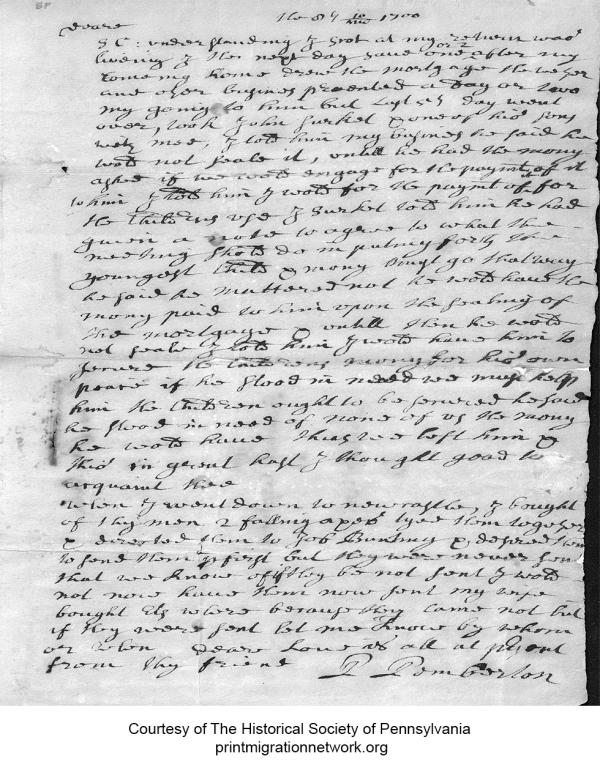 the 8th 10/mo 1700
Deare
SC: understanding I got at my returne was
liveing I the next day save one or 2 after my
comeing home drew the mortgage the weather
and other business prevented a day or two
my going to him but last 5th day went
over, took John Surket & one of his sons
with mee, I told him my business he said he
would not seale it, untill he had the mony
asked if we would engage for the paymt of it
to him I told him I would for the paymt off for
the Childrens use I Surket told him he had
given a note to agree to what the
meeting should do in puting forth the
youngest Child & mony must go that way
he said he mattered not he would have the
mony paid to him upon the sealing of
the mortgage & untill then he would
not seale I told him I would have him to
secure the Childrens mony for his own
peace if he stood in need we must help
him the Children ought to be secured before
he stood in need of none of us the mony
he would have thus we left him &
this in great hast I thought good to
acquaint thee
when I went down to newcastle, I bought
of thy men 2 falling axes tyed them together
& directed them to Job Bunting & desired them
to send them first but they were never sent
that we know off if they be not sent I would
not now have them now sent my wife
bought els where because they came not but
if they were sent let me know by whom
or when Deare Love is all at psent
from thy friend P Pemberton
Courtesy of The Historical Society of Pennsylvania
printmigrationnetwork.org